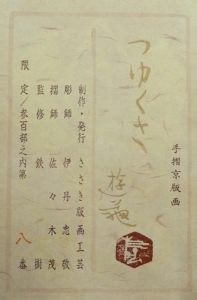 手摺京版画
つゆくさ
制作・発行 ささき版画工芸
彫師 伊丹忠敬
摺師 佐々木茂
監修 鉄樹
限定/参百部之内第 八 番